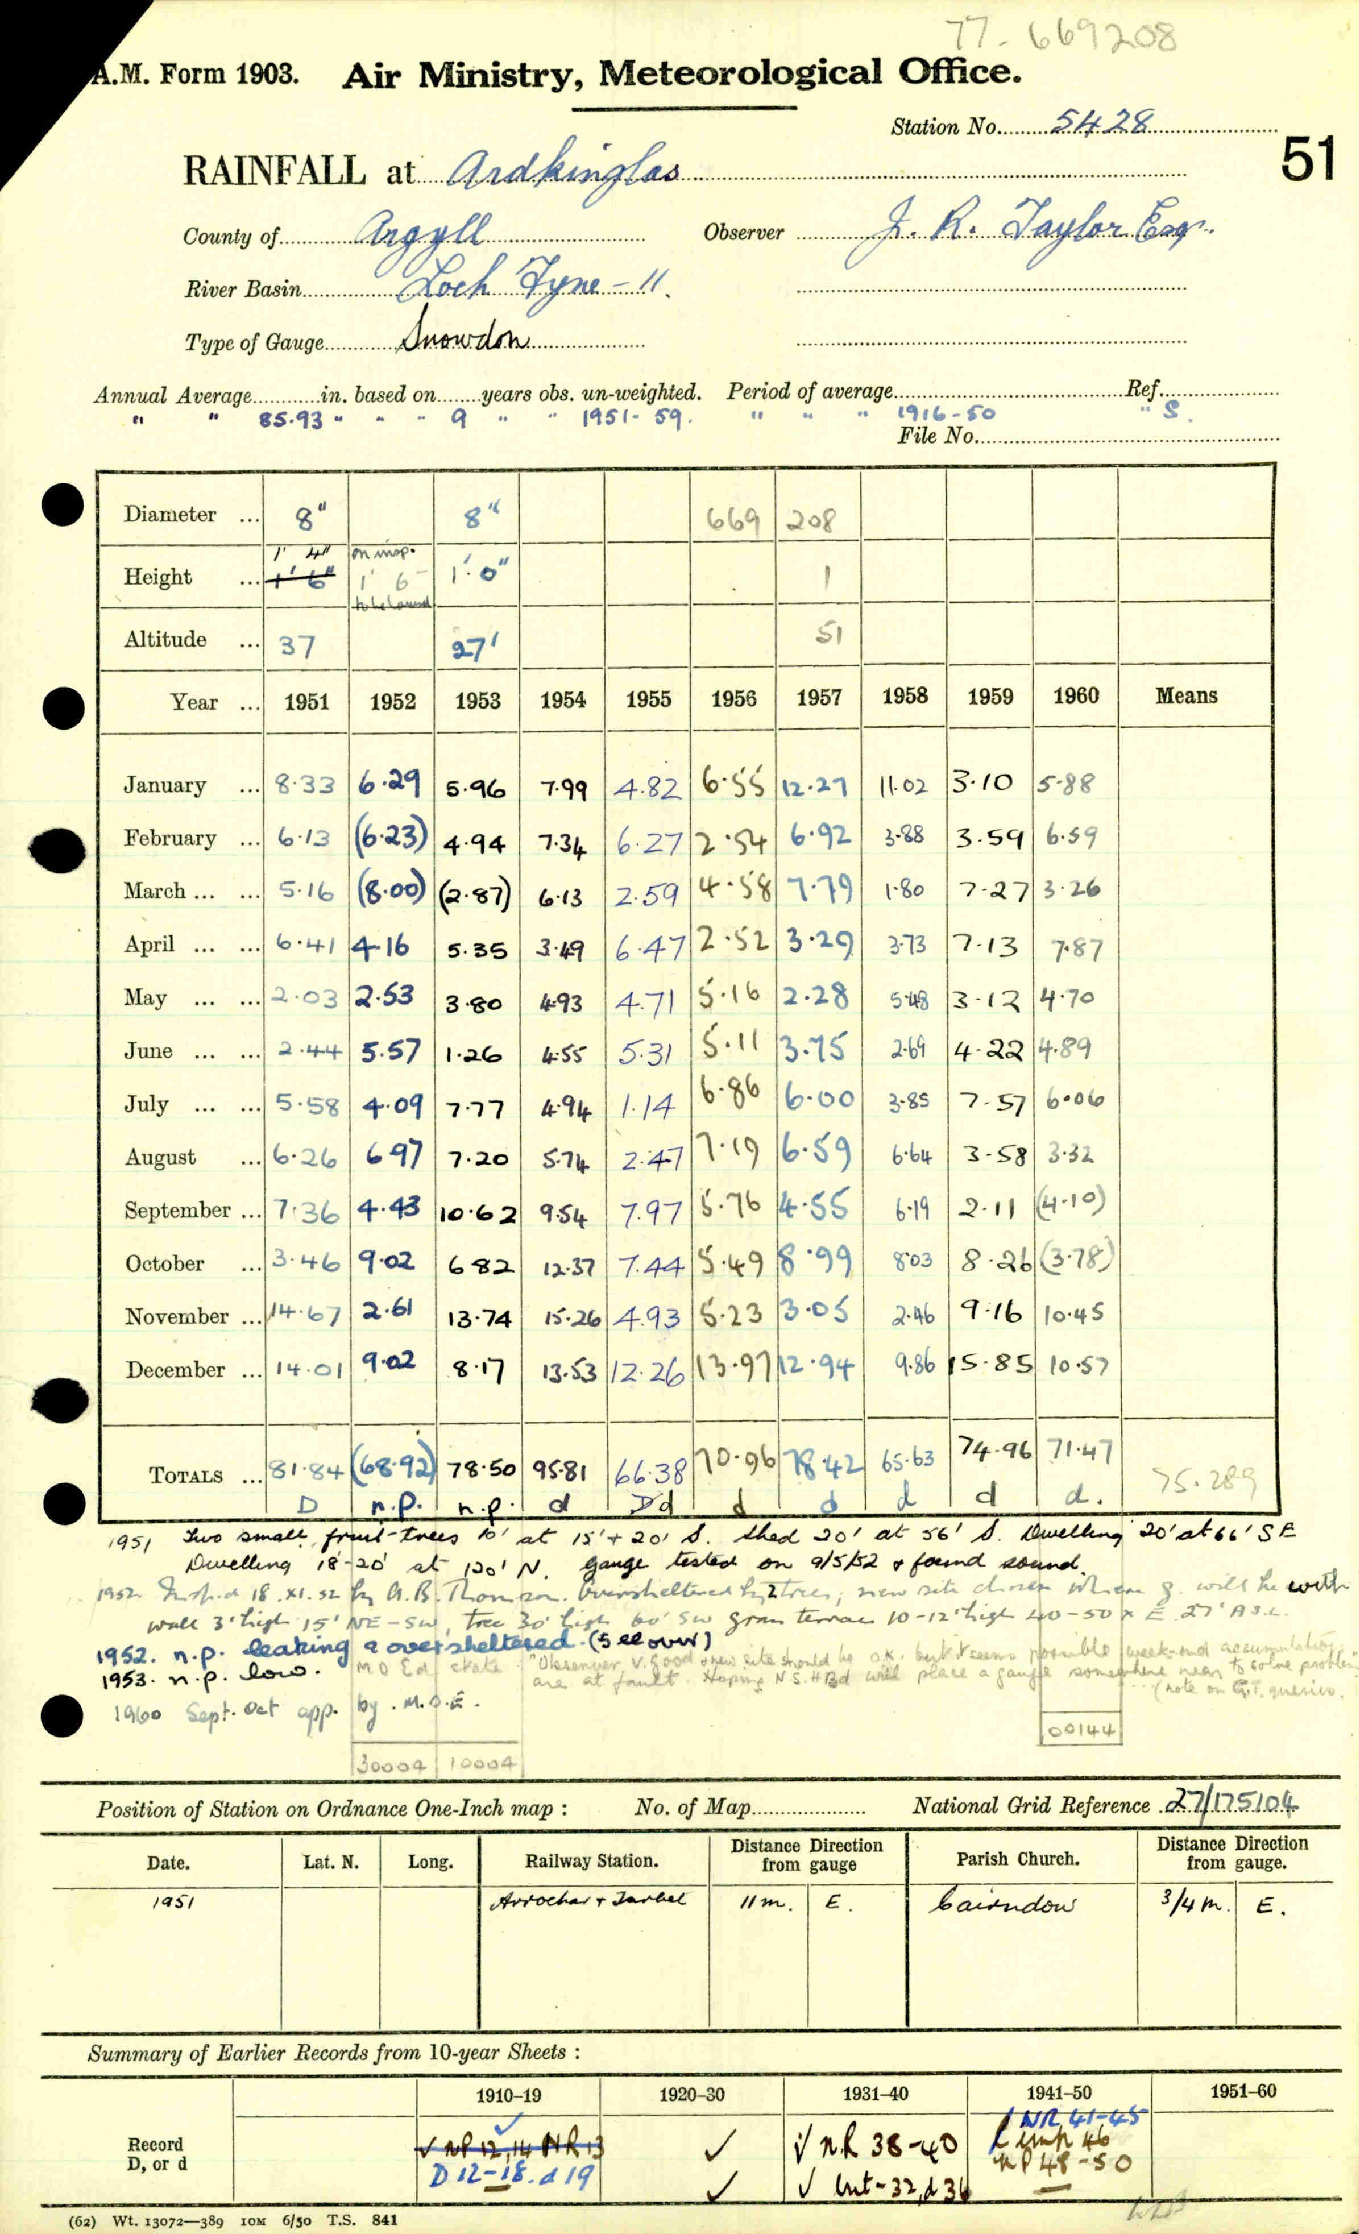 77-669208
A.M. Form 1903. Air Ministry, Meteorological Office.
Station No. 5428
51
RAINFALL at Ardkinglas
County of Argyll Observer J. R. Taylor Esqr.
River Basin Loch Fyne - 11.
Type of Gauge Snowdon
Annual Average in. based on years obs. un-weighted. Period of average Ref.
" " 85.93 " " " 9 " " 1951-59. " " " 1916-50 " S.
File No.
Diameter ... 8" 8" 669 208
Height ... 1' 4" 1' 6" on insp. 1' 6" 1'·0" 1
Altitude ... 37 27' 51
Year ... 1951 1952 1953 1954 1955 1956 1957 1958 1959 1960 Means
January ... 8.33 6.29 5.96 7.99 4.82 6.55 12.27 11.02 3.10 5.88
February ... 6.13 (6.23) 4.94 7.34 6.27 2.54 6.92 3.88 3.59 6.59
March ... ... 5.16 (8.00) (2.87) 6.13 2.59 4.58 7.79 1.80 7.27 3.26
April ... ... 6.41 4.16 5.35 3.49 6.47 2.52 3.29 3.73 7.13 7.87
May ... ... 2.03 2.53 3.80 4.93 4.71 5.16 2.28 5.48 3.12 4.70
June ... ... 2.44 5.57 1.26 4.55 5.31 5.11 3.75 2.69 4.22 4.89
July ... ... 5.58 4.09 7.77 4.94 1.14 6.86 6.00 3.85 7.57 6.06
August ... 6.26 6.97 7.20 5.74 2.47 7.19 6.59 6.64 3.58 3.32
September ... 7.36 4.43 10.62 9.54 7.97 5.76 4.55 6.19 2.11 (4.10)
October ... 3.46 9.02 6.82 12.37 7.44 5.49 8.99 8.03 8.26 (3.78)
November ... 14.67 2.61 13.74 15.26 4.93 5.23 3.05 2.46 9.16 10.45
December ... 14.01 9.02 8.17 13.53 12.26 13.97 12.94 9.86 15.85 10.57
TOTALS ... 81.84 (68.92) 78.50 95.81 66.38 70.96 78.42 65.63 74.96 71.47 75.289
D n.p. n.p. d Dd d d d d d.
1951 Two small fruit-trees 10' at 15' + 20' S. Shed 20' at 56' S. Dwelling 20' at 66' SE
Dwelling 18'-20' at 120' N. gauge tested on 9/5/52 & found sound.
1952. Insp.d 18.XI.52 by A.B. Thomson. Oversheltered by 2 trees; new site chosen where g. will be with
wall 3' high 15' NE-SW, tree 30' high 60' SW grass terrace 10-12' high 40-50 x E 27' A.S.L.
1952. n.p. leaking & oversheltered. (See over)
1953. n.p. low. M O Ed state "Observer v. good & new site should be O.K. but it seems possible week-end accumulations
are at fault. Hoping N.S.H.Bd will place a gauge somewhere near to solve problem"
(note on G.T. queries.
1960 Sept. Oct app. by. M.O.E.
00144
30004 10004
Position of Station on Ordnance One-Inch map : No. of Map National Grid Reference 27/175104
Date. Lat. N. Long. Railway Station. Distance from gauge Direction Parish Church. Distance from gauge. Direction
1951 Arrochar & Tarbet 11 m. E. Cairndow 3/4 m. E.
Summary of Earlier Records from 10-year Sheets :
1910–19 1920–30 1931–40 1941–50 1951–60
Record
D, or d
✓ nP 12, 14 NR 13 ✓ ✓ n.R 38-40 NR 41-45
D 12-18. d 19 ✓ ✓ Int-32, d 36 imp 46
nP 48-50
(62) Wt. 13072—389 10M 6/50 T.S. 841